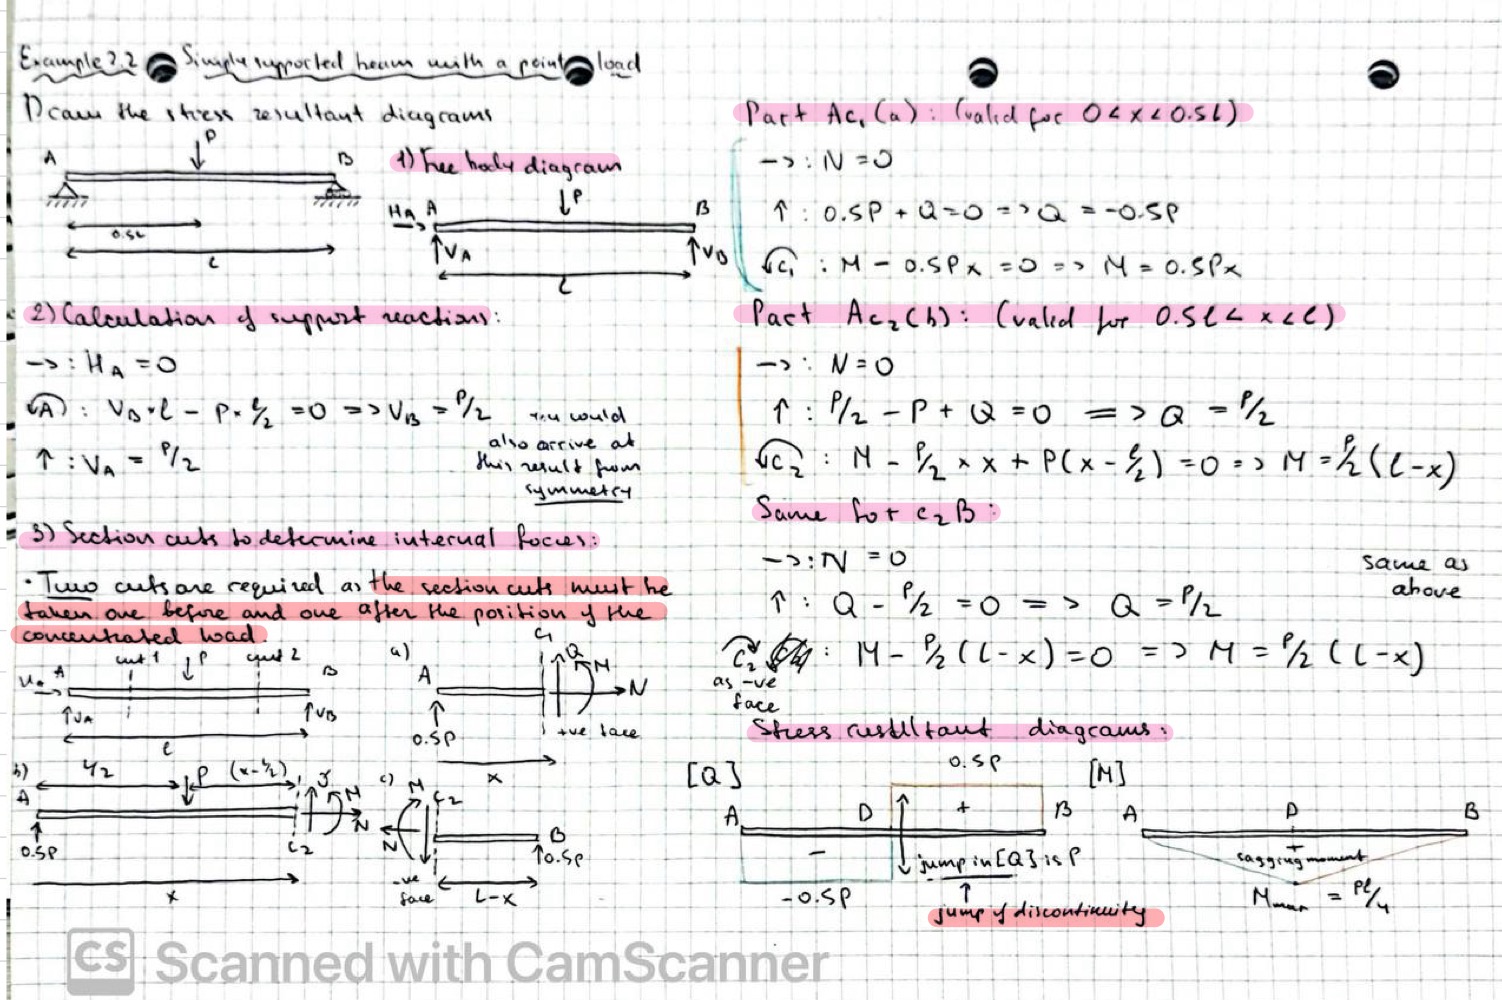 Example 2.2 Simply supported beam with a point load
Draw the stress resultant diagrams
P
A
B
0.5L
L
1) Free body diagram
HA A
P
B
VA
VB
L
2) Calculation of support reactions:
-> : HA = 0
A : VB * l - P * l/2 = 0 => VB = P/2
you would
also arrive at
this result from
symmetry
↑ : VA = P/2
3) Section cuts to determine internal forces:
• Two cuts are required as the section cuts must be
taken one before and one after the position of the
concentrated load.
HA A
cut 1
P
cut 2
B
VA
VB
l
a)
C1
A
Q
M
N
0.5P
+ve face
x
b)
L/2
P
(x-L/2)
A
M
N
0.5P
C2
x
c)
M
C2
N
B
0.5P
-ve
face
L-x
Part AC1 (a) : (valid for 0 < x < 0.5L)
-> : N = 0
↑ : 0.5P + Q = 0 => Q = -0.5P
C1 : M - 0.5Px = 0 => M = 0.5Px
Part AC2 (b) : (valid for 0.5l < x < l)
-> : N = 0
↑ : P/2 - P + Q = 0 => Q = P/2
C2 : M - P/2 * x + P(x - l/2) = 0 => M = P/2 (l-x)
Same for C2B :
-> : N = 0
same as
above
↑ : Q - P/2 = 0 => Q = P/2
C2 : M - P/2 (L-x) = 0 => M = P/2 (L-x)
as -ve
face
Stress resultant diagrams:
[Q]
0.5P
A
D
+
B
-
jump in [Q] is P
-0.5P
jump of discontinuity
[M]
A
D
B
+
sagging moment
Mmax = Pl/4
CS Scanned with CamScanner